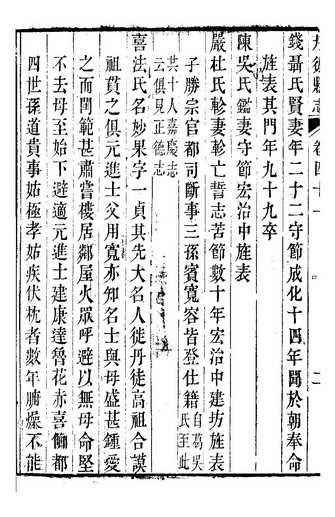 丹徒縣志 卷四十一 二
錢聶氏賢妻年二十二守節成化十四年聞於朝奉命
旌表其門年九十九卒
陳吳氏鑑妻守節宏治中旌表
嚴杜氏軫妻軫亡誓志苦節數十年宏治中建坊旌表
子勝宗官都司斷事三孫賓寬容皆登仕籍自葛吳
氏至此
共十人嘉慶志
云俱見正德志
喜法氏名妙果字一貞其先大名人徙丹徒高祖合謨
祖貫之俱元進士父用寬亦知名士與母盛甚鍾愛
之而閨範甚肅嘗樓居鄰屋火眾呼避以無母命堅
不去母至始下避適元進士建康達魯花赤喜僩都
四世孫道貴事姑極孝姑疾伏枕者數年腑燥不能